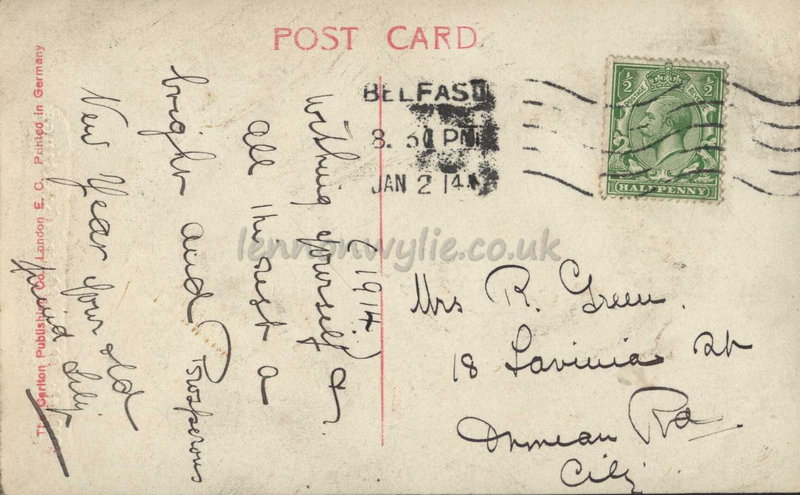 POST CARD
BELFAST
8.30 PM
JAN 2 14
½ ½
HALFPENNY
The Carlton Publishing Co., London E. C. Printed in Germany
(1914)
Wishing yourself &
all the rest a
bright and Prosperous
New Year your old
friend Lily
Mrs R. Green.
18 Lavinia St
Ormeau Rd
City
lennonwylie.co.uk